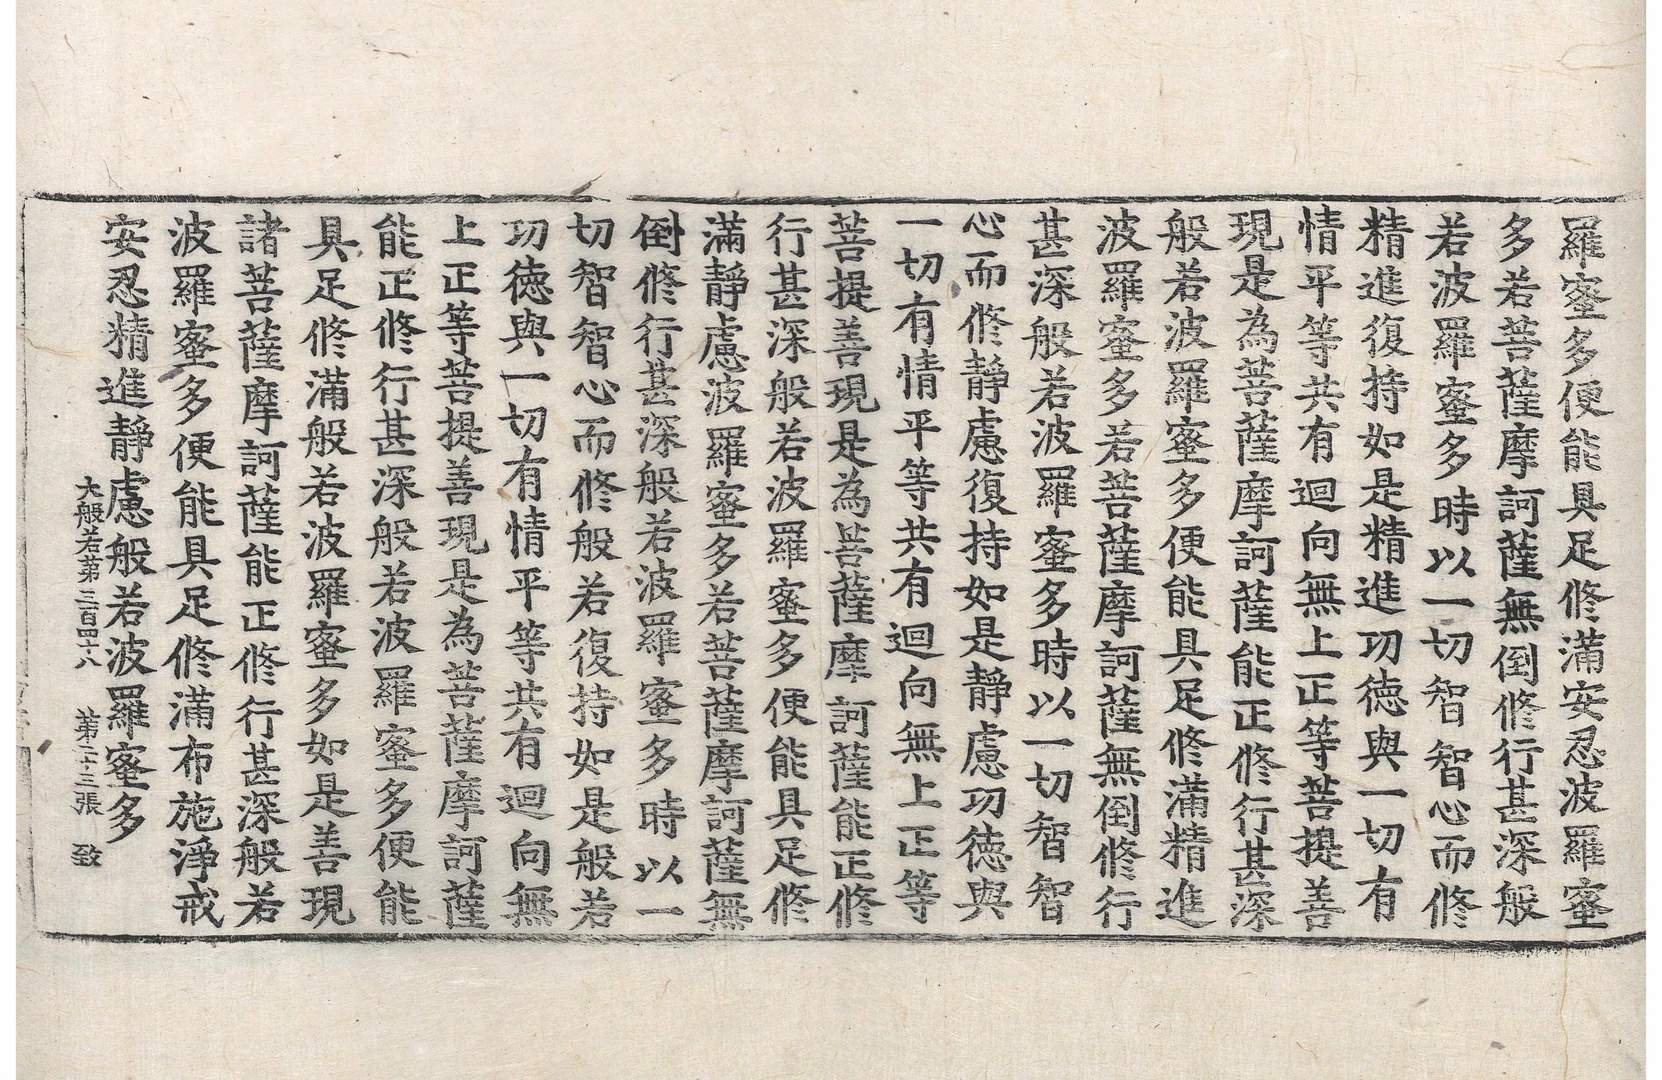 羅蜜多便能具足修滿安忍波羅蜜
多若菩薩摩訶薩無倒修行甚深般
若波羅蜜多時以一切智智心而修
精進復持如是精進功德與一切有
情平等共有迴向無上正等菩提善
現是為菩薩摩訶薩能正修行甚深
般若波羅蜜多便能具足修滿精進
波羅蜜多若菩薩摩訶薩無倒修行
甚深般若波羅蜜多時以一切智智
心而修靜慮復持如是靜慮功德與
一切有情平等共有迴向無上正等
菩提善現是為菩薩摩訶薩能正修
行甚深般若波羅蜜多便能具足修
滿靜慮波羅蜜多若菩薩摩訶薩無
倒修行甚深般若波羅蜜多時以一
切智智心而修般若復持如是般若
功德與一切有情平等共有迴向無
上正等菩提善現是為菩薩摩訶薩
能正修行甚深般若波羅蜜多便能
具足修滿般若波羅蜜多如是善現
諸菩薩摩訶薩能正修行甚深般若
波羅蜜多便能具足修滿布施淨戒
安忍精進靜慮般若波羅蜜多
大般若第三百四十八 第二十三張 致